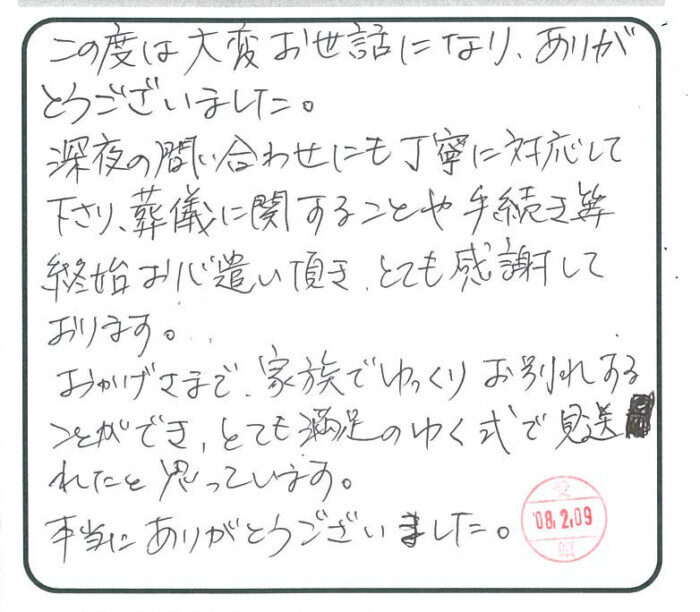 この度は大変お世話になり、ありが
とうございました。
深夜の問い合わせにも丁寧に対応して
下さり、葬儀に関することや手続き等
終始お心遣い頂き、とても感謝して
おります。
おかげさまで、家族でゆっくりお別れする
ことができ、とても満足のゆく式で見送
れたと思っています。
本当にありがとうございました。
'08.2.09